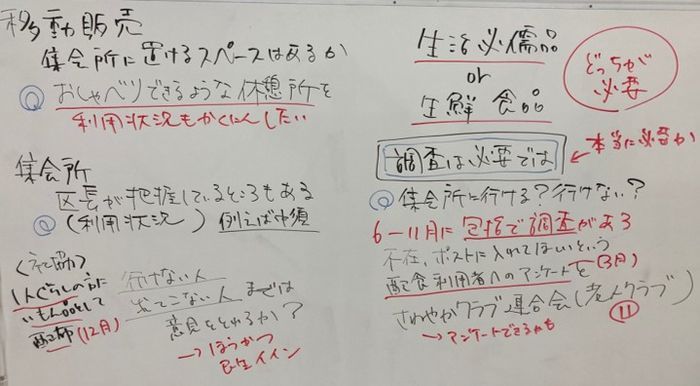 移動販売
集会所に置けるスペースはあるか
Q おしゃべりできるような休憩所を
利用状況もかくにんしたい
集会所
区長が把握しているところもある
Q (利用状況) 例えば中須
〈社協〉
1人ぐらしの方に
いもん品として
配布 (12月)
行けない人
出てこない人 までは
意見をとれるか?
→ ほうかつ
民生イイン
生活必需品
or
生鮮食品
どっちが
必要
調査は必要では
← 本当に必要か
Q 集会所に行ける?行けない?
6-11月に包括で調査がある
不在、ポストに入れてほしいという
配食利用者へのアンケートを (3月)
さわやかクラブ連合会(老人クラブ)
→ アンケートできるかも
11